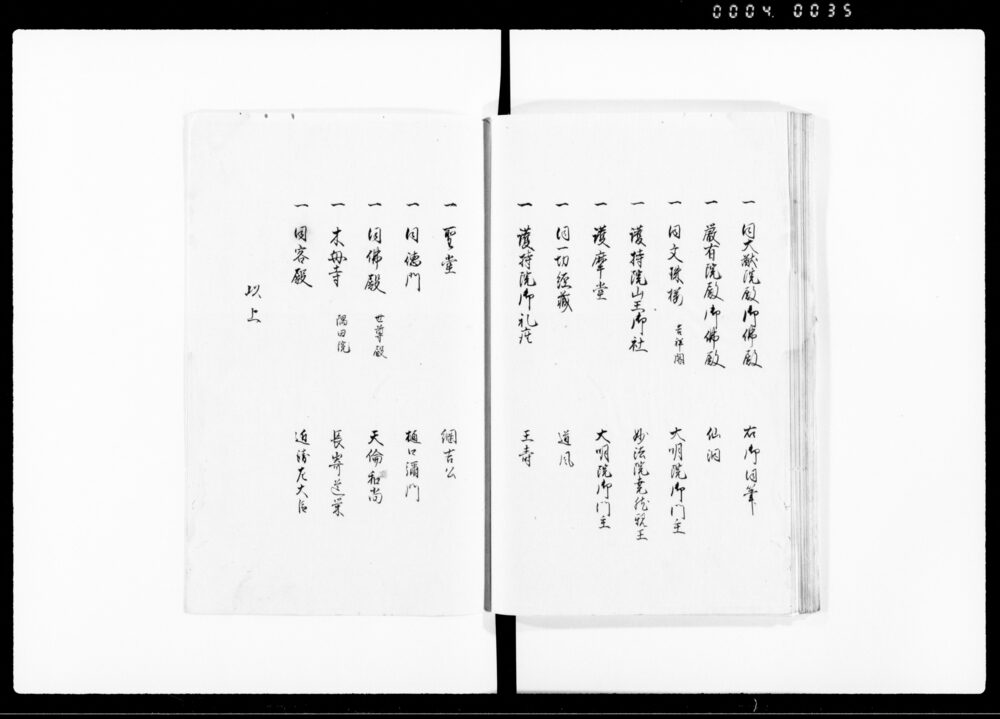 0004 0035
一 同大猷院殿御佛殿 右御同筆
一 嚴有院殿御佛殿 仙洞
一 同文殊樓 吉祥閣 大明院御門主
一 護持院山王御社 妙法院堯然親王
一 護摩堂 大明院御門主
一 同一切經藏 道風
一 護持院御札 王寿
一 聖堂 綱吉公
一 同德門 樋口
一 同佛殿 世尊殿 天倫和尚
一 木母寺 隅田院
一 同客殿 近衛左大臣
以上